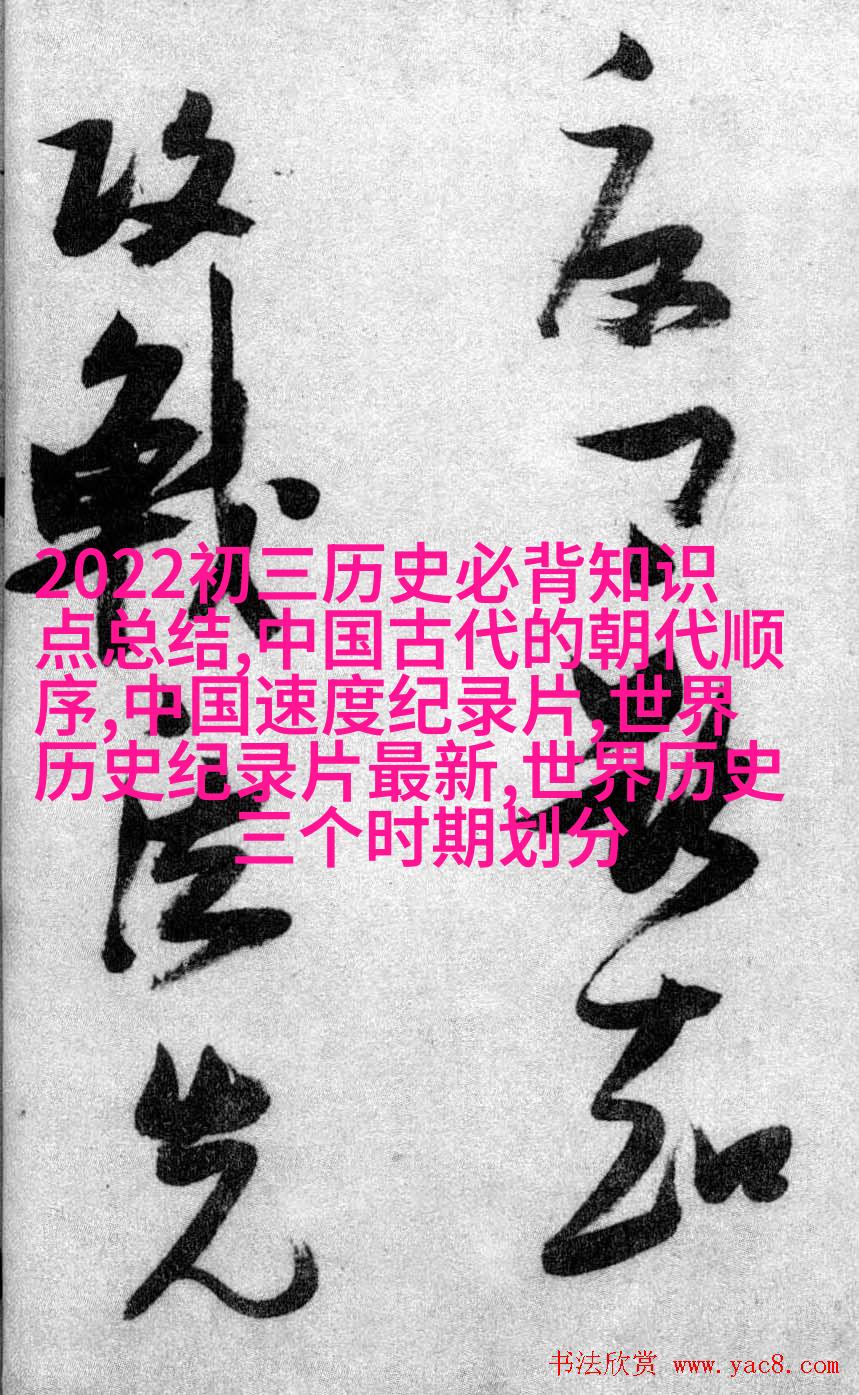 2022初三历史必背知识
点总结,中国古代的朝代顺
序,中国速度纪录片,世界
历史纪录片最新,世界历史
三个时期划分
知
攻戰法先
书法欣赏 www.yac8.com